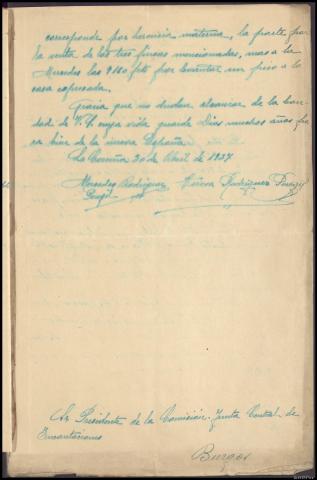 corresponde por herencia materna, la parte por
la venta de las tres fincas mencionadas, mas a la
Mercedes las 9180 pts por levantar un piso a la
casa expresada.
Gracia que no dudan alcanzar de la bon
dad de V. E. cuya vida guarde Dios muchos años pa
ra bien de la nueva España.
La Coruña 30 de Abril de 1937
Mercedes Rodriguez
Rodriguez
Sr. Presidente de la Comisión - Junta Central de
Incautaciones
Burgos